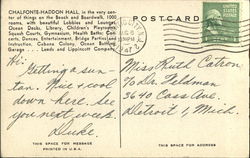 CHALFONTE-HADDON HALL, in the very center
of things on the Beach and Boardwalk. 1000
rooms, with beautiful Lobbies and Lounges,
Ocean Decks, Library, Children's Playrooms,
Squash Courts, Gymnasium, Health Baths; Con-
certs, Dances, Entertainment, Bridge Parties and
Instruction, Cabana Colony, Ocean Bathing,
Garage . . . Leeds and Lippincott Company.
POSTCARD
1947
Hi:
Getting a sun-
tan. Nice & cool
down here. See
you next week.
Duke.
Miss Ruth Catron
% Dr. Feldman
3640 Cass Ave.
Detroit 1, Mich.
THIS SPACE FOR MESSAGE
PRINTED IN U.S.A.
THIS SPACE FOR ADDRESS